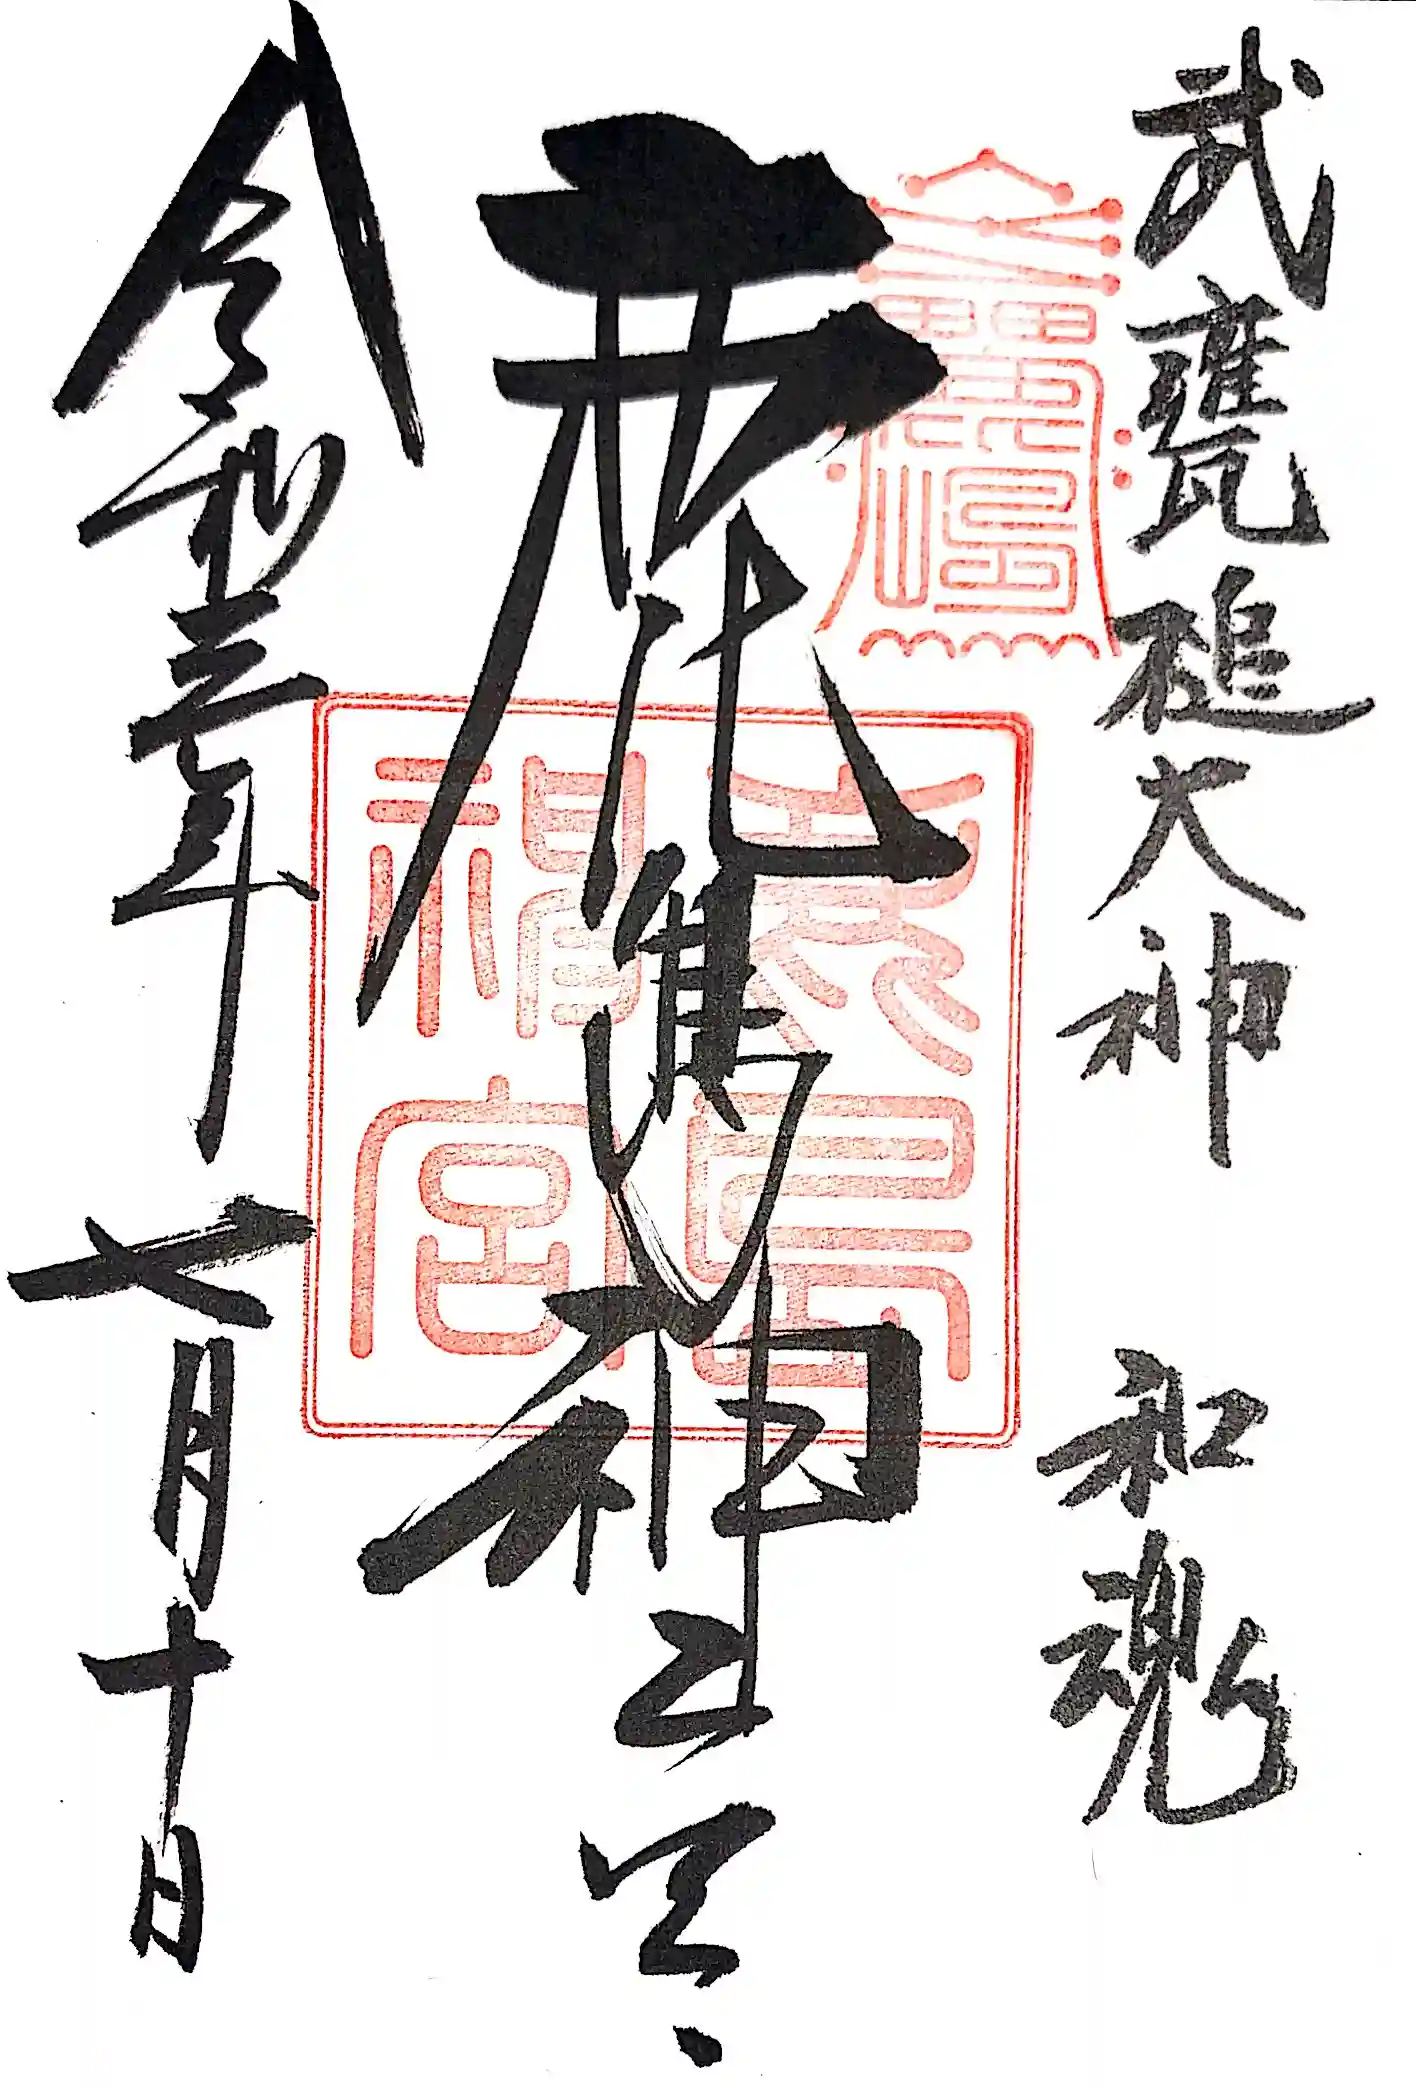 武甕槌大神 和魂
鹿島神宮
令和三年七月十日
鹿島神宮